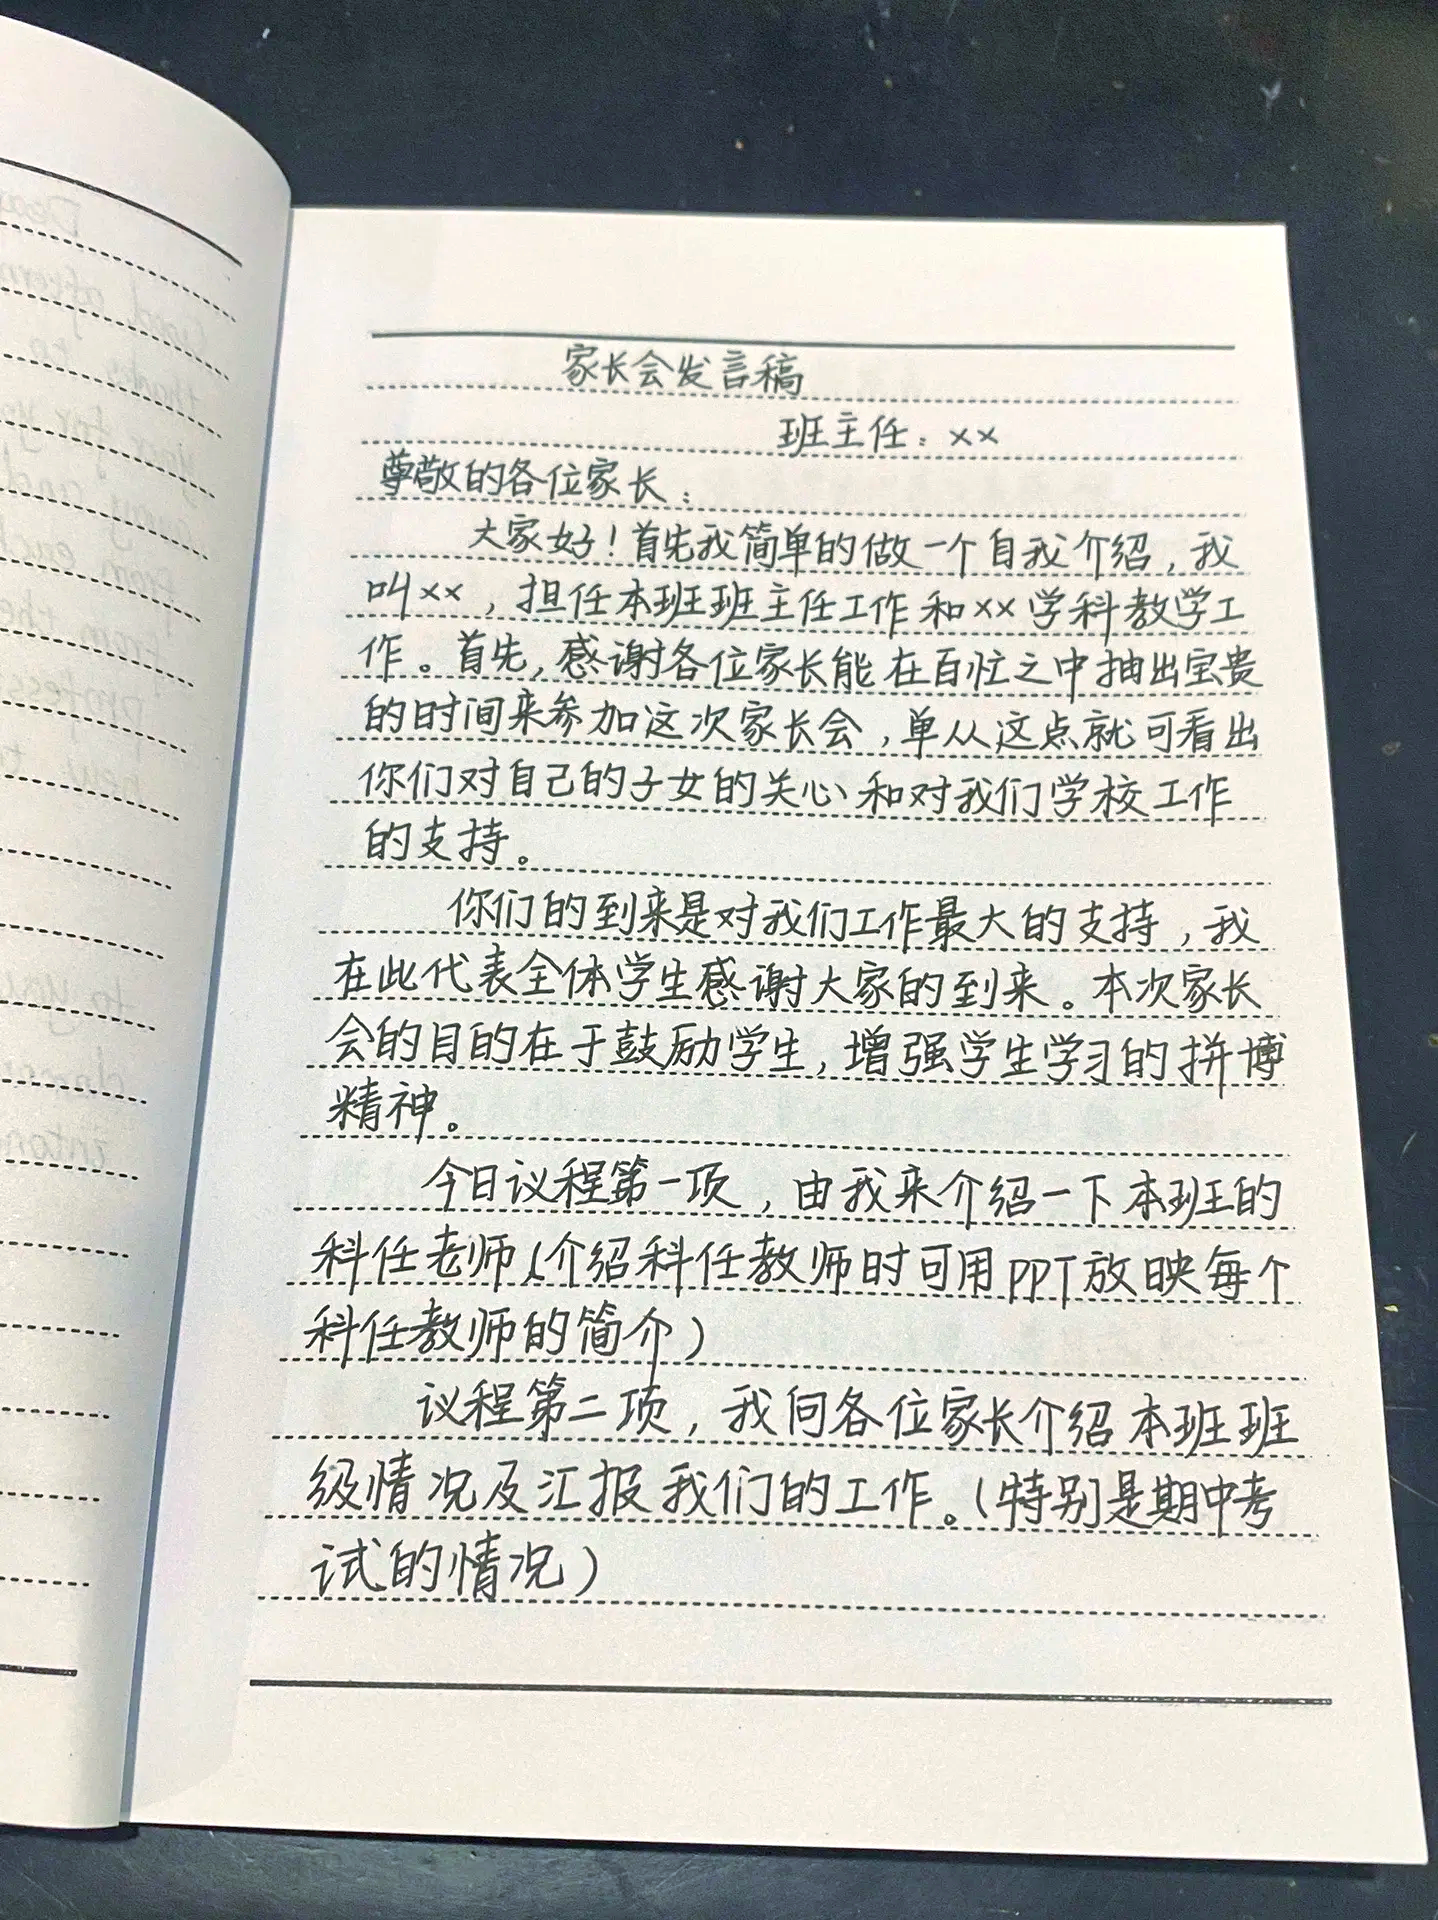 家长会发言稿
班主任：××
尊敬的各位家长：
大家好！首先我简单的做一个自我介绍，我
叫××，担任本班班主任工作和××学科教学工
作。首先，感谢各位家长能在百忙之中抽出宝贵
的时间来参加这次家长会，单从这点就可看出
你们对自己的子女的关心和对我们学校工作
的支持。
你们的到来是对我们工作最大的支持，我
在此代表全体学生感谢大家的到来。本次家长
会的目的在于鼓励学生，增强学生学习的拼博
精神。
今日议程第一项，由我来介绍一下本班的
科任老师（介绍科任教师时可用PPT放映每个
科任教师的简介）
议程第二项，我向各位家长介绍本班班
级情况及汇报我们的工作。（特别是期中考
试的情况）